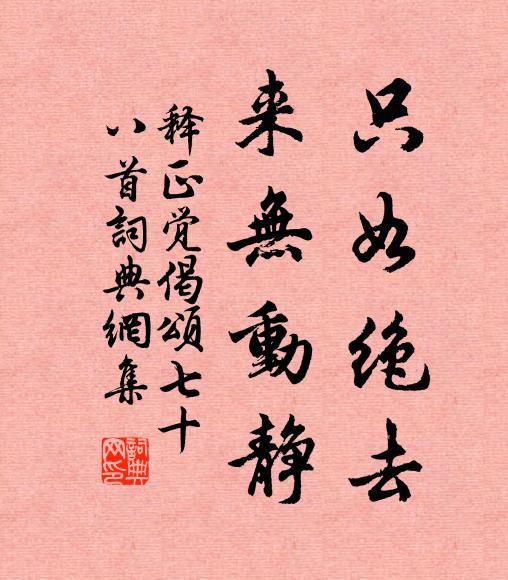 只如绝去
来無動静
释正觉偈頌七十
八首詞典網集
詞典
网印